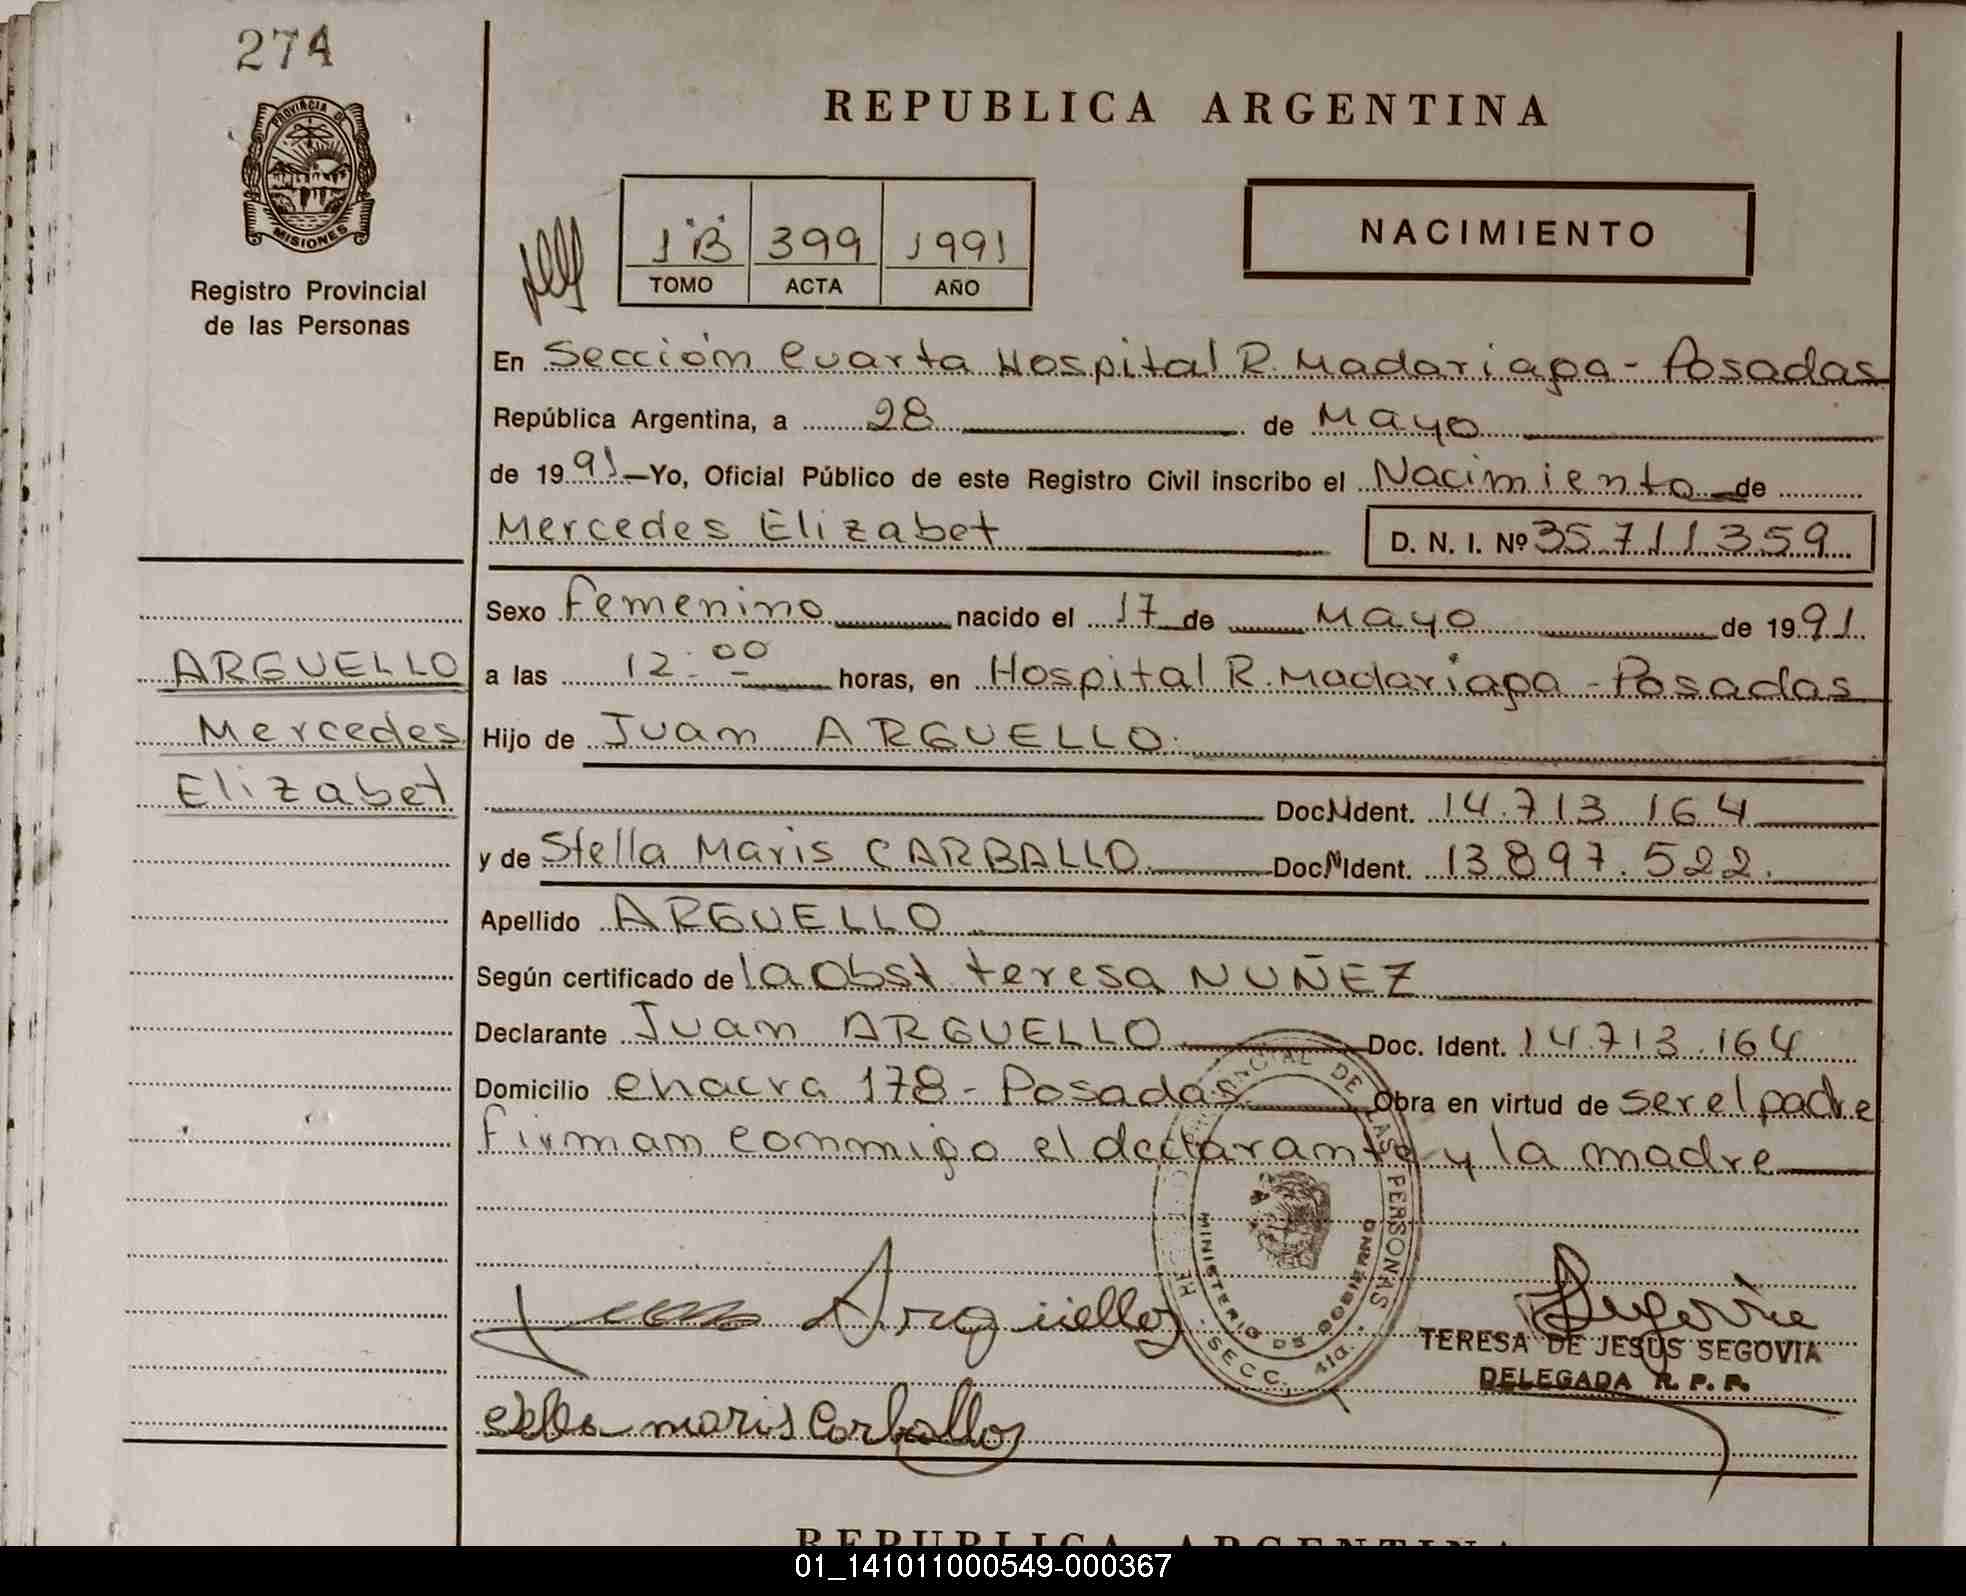 274
PROVINCIA DE
MISIONES
Registro Provincial
de las Personas
REPUBLICA ARGENTINA
1"B" 399 1991
TOMO ACTA AÑO
NACIMIENTO
En Sección Cuarta Hospital R. Madariaga - Posadas
República Argentina, a 28 de Mayo
de 1991 —Yo, Oficial Público de este Registro Civil inscribo el Nacimiento de
Mercedes Elizabet D. N. I. Nº 35.711.359
Sexo Femenino nacido el 17 de Mayo de 1991
a las 12:00 horas, en Hospital R. Madariaga - Posadas
Hijo de Juan ARGUELLO
Doc.N Ident. 14.713.164
y de Stella Maris CARBALLO Doc.N Ident. 13.897.522.
Apellido ARGUELLO
Según certificado de la Obst teresa NUÑEZ
Declarante Juan ARGUELLO Doc. Ident. 14.713.164
Domicilio chacra 178 - Posadas Obra en virtud de ser el padre
firman conmigo el declarante y la madre
ARGUELLO
Mercedes
Elizabet
DE LAS PERSONAS
MINISTERIO DE GOBIERNO
SECC. 4ta.
Argüello
TERESA DE JESUS SEGOVIA
DELEGADA R. P. P.
Stella maris Carballo
REPUBLICA ARGENTINA
01_141011000549-000367